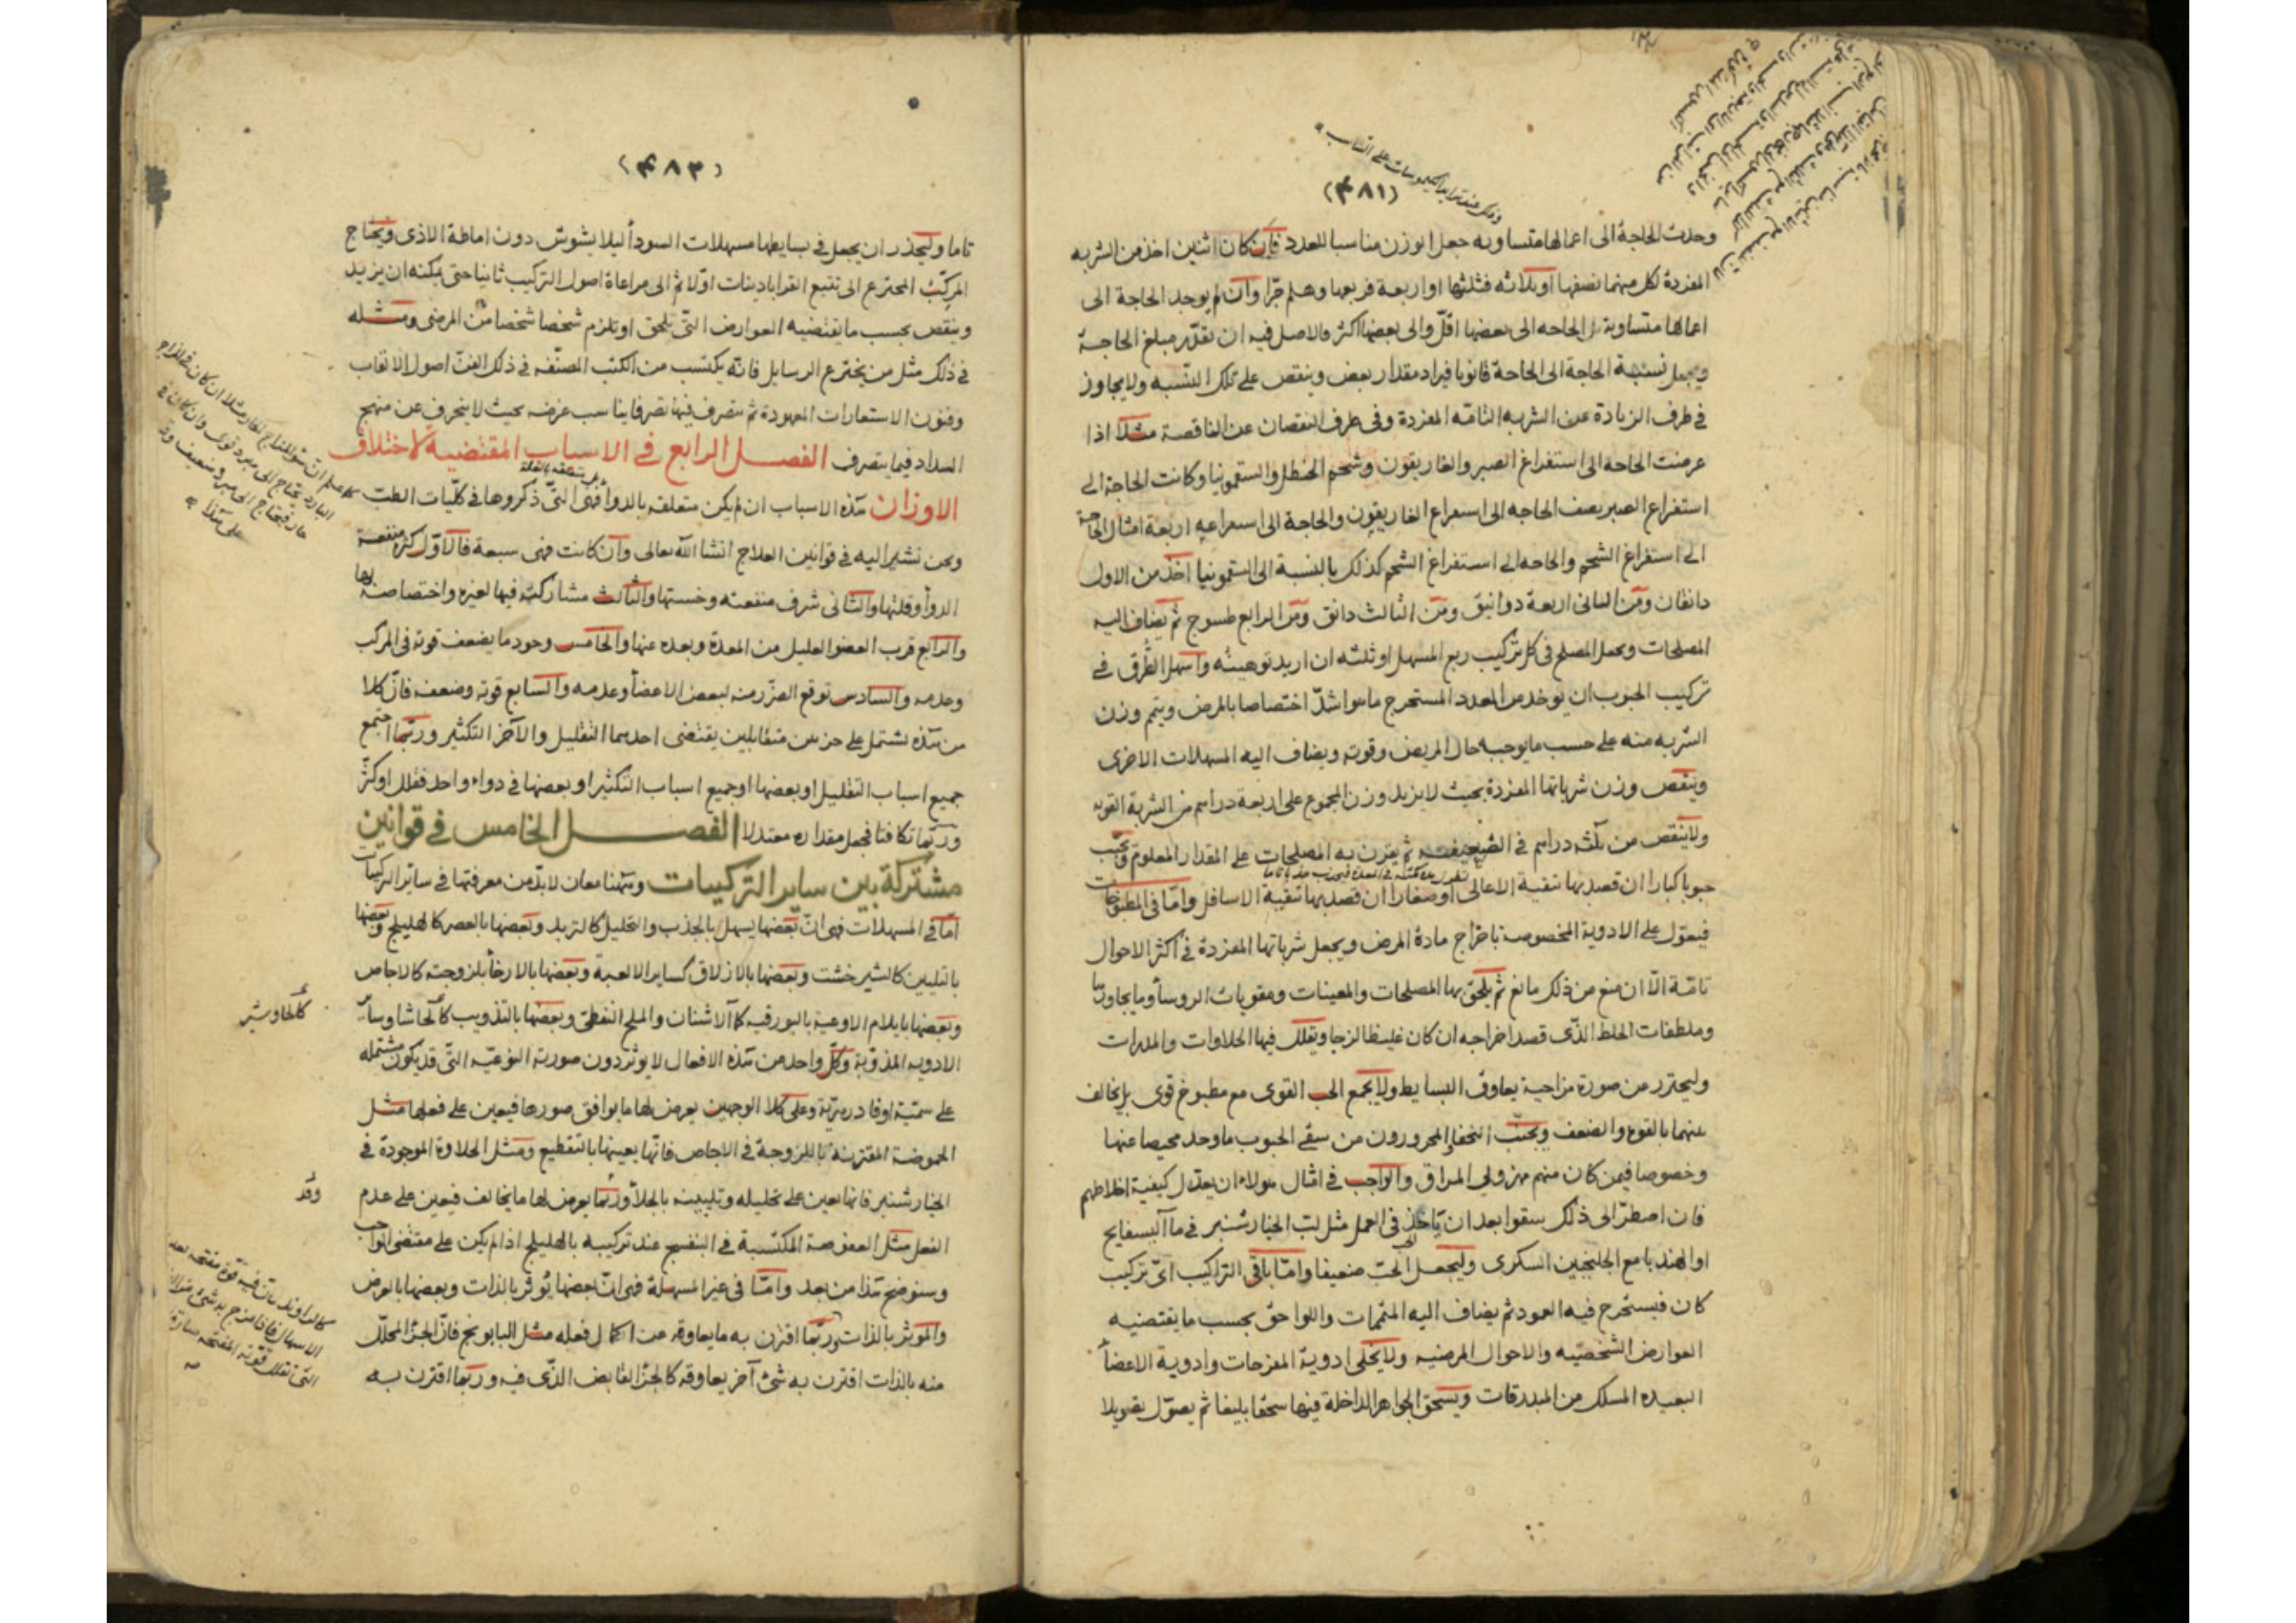 (۴۸۱)
وحدث الحاجة الى اعمالها متساويه جعل الوزن مناسبا للعدد فان كان اثنين اخذ من الشربه
المفردة لكل منهما نصفها او ثلاثه فثلثها او اربعة فربعها وهلم جرّا وان لم يوجد الحاجة الى
اعمالها متساوية بل الحاجه الى بعضها اقلّ والى بعضها اكثر فالاصل فيه ان تقدّر مبلغ الحاجة
ويجعل نسبة الحاجة الى الحاجة قانونا فيزاد مقدار بعض وينقص على تلك النّسبه ولا يجاوز
فى طرف الزيادة عن الشربه التامّه المفردة وفى طرف النقصان عن الناقصة مثلا اذا
عرضت الحاجه الى استفراغ الصبر والغاريقون وشحم الحنظل والسقمونيا وكانت الحاجة الى
استفراغ الصبر نصف الحاجه الى استفراغ الغاريقون والحاجة الى استفراغه اربعة امثال الحاجة
الى استفراغ الشحم والحاجه الى استفراغ الشحم كذلك بالنسبة الى السقمونيا اخذ من الاول
دانقان ومن الثانى اربعة دوانيق ومن الثالث دانق ومن الرابع طسوج ثم يضاف اليه
المصلحات ويجعل المصلح فى كل تركيب ربع المسهل او ثلثه ان اريد توهينه واسهل الطّرق فى
تركيب الحبوب ان يوخذ من العدد المستخرج ما هو اشدّ اختصاصا بالمرض ويتم وزن
الشربه منه على حسب ما يوجبه حال المريض وقوته ويضاف اليه المسهلات الاخرى
وينقص وزن شرباتها المفردة بحيث لا يزيد وزن المجموع على اربعة دراهم من الشربة القويه
ولا ينقص من ثلثه دراهم فى الضّعيفه ثم يقرن به المصلحات على المقدار المعلوم ويحبّب
حبوبا كبارا ان قصد بها تنقية الاعالى او صغارا ان قصد بها تنقية الاسافل وامّا فى المطبوخات
فيعوّل على الادوية المخصوصة باخراج مادة المرض ويجعل شرباتها المفردة فى اكثر الاحوال
تامّة الّا ان منع من ذلك مانع ثم يلحق بها المصلحات والمعينات ومقويات الروسا وما يجاورها
وملطفات الخلط الذّى قصد اخراجه ان كان غليظا لزجا ويقلل فيها الحلاوات والمدرات
وليحترز من صورة مزاجية يعاوق البسايط ولا يجمع الحب القوى مع مطبوخ قوى بل يخالف
بينهما بالقوة والضعف ويجنّب النحفا المحرورون من سقى الحبوب ما وجد محيصا عنها
وخصوصا فيمن كان منهم مهزولى المراق والواجب فى امثال هولاء ان يعدّل كيفية اخلاطهم
فان اضطرّ الى ذلك سقوا بعد ان ياخذ فى العمل مثل لبّ الخيارشنبر فى ماء البسفايج
او الهندبا مع الجلنجبين السكرى وليجعل الحبّ ضعيفا وامّا باقى التراكيب اىّ تركيب
كان فيستخرج فيه العمود ثم يضاف اليه المتممات واللواحق بحسب ما يقتضيه
العوارض الشخصيّه والاحوال المرضيه ولا يخلى ادوية المفرحات وادوية الاعضاء
البعيده المسلك من المبدرقات ويسحق الجواهر الداخلة فيها سحقا بليغا ثم يصوّل تصويلا
(۴۸۲)
تاما وليحذر ان يجعل فى بسايطها مسهلات السوداء ليلا يشوش دون اماطة الاذى ويحتاج
المركّب المخترع الى تتبع القراباديات اوّلا ثم الى مراعاة اصول التركيب ثانيا حتى يمكنه ان يزيد
وينقص بحسب ما يقتضيه العوارض التّى تلحق او تلزم شخصا شخصا من المرضى ومثله
فى ذلك مثل من يخترع الرسايل فانّه يكتسب من الكتب المصنّفه فى ذلك الفنّ اصول الالقاب
وفنون الاستعارات المعهودة ثم يتصرف فيها تصرفا يناسب غرضه بحيث لا ينحرف عن منهج
السداد فيما يتصرف الفصل الرابع فى الاسباب المقتضية لاختلاف
الاوزان هذه الاسباب ان لم يكن متعلقه بالدواء فهى التّى ذكروها فى كلّيات الطبّ
ونحن نشير اليه فى قوانين العلاج انشا الله تعالى وان كانت فهى سبعة فالاوّل كثرة منفعة
الدواء وقلتها والثانى شرف منفعته وخستها والثالث مشاركته فيها لغيره واختصاصه بها
والرابع قرب العضو العليل من المعدة وبعده عنها والخامس وجود ما يضعف قوته فى المركب
وعدمه والسادس توقع الضّرر منه لبعض الاعضاء وعدمه والسابع قوته وضعفه فانّ كلا
من هذه تشتمل على جزءين متقابلين يقتضى احدهما التقليل والآخر التكثير وربّما اجتمع
جميع اسباب التقليل او بعضها او جميع اسباب التّكثير او بعضها فى دواء واحد فقلل او كثّر
وربّما تكافتا فجعل مقداره معتدلا الفصل الخامس فى قوانين
مشتركة بين ساير التركيبات وههنا معان لابدّ من معرفتها فى ساير التركيبات
امّا فى المسهلات فهى انّ بعضها يسهل بالجذب والتحليل كالتربد وبعضها بالعصر كالهليلج وبعضها
بالتليين كالشيرخشت وبعضها بالازلاق كساير الالعبة وبعضها بالارخاء بلزوجته كالاجاص
وبعضها بايلام الاوعية بالبورقيه كالاشنان والملح النفطى وبعضها بالتذويب كالحاشا وساير
الادويه المذوّبة وكلّ واحد من هذه الافعال لا يوثر دون صورته النوعيّه التّى قد يكون مشتمله
على سمّيّة او فادزهريّة وعلى كلا الوجهين يعرض لها ما يوافق صورها فيعين على فعلها مثل
الحموضة المقترنه باللزوجة فى الاجاص فانّها يعينها بالتقطيع ومثل الحلاوة الموجودة فى
الخيارشنبر فانها يعين على تحليله وتليينه بالجلاء وربّما يعرض لها ما يخالف فيعين على عدم
الفعل مثل العفوصة المكتسبة فى البنفسج عند تركيبه بالهليلج اذا لم يكن على مقتضى الواجب
وسنوضح هذا من بعد وامّا فى غير المسهلة فهى انّ بعضها يوثر بالذات وبعضها بالعرض
والموثر بالذات وربّما اقترن به ما يعاوقه عن اكمال فعله مثل البابونج فانّ الجزء المحلّل
منه بالذات اقترن به شئ آخر يعاوقه كالجزء القابض الذّى فيه وربّما اقترن به
كالجاوشير
وقد